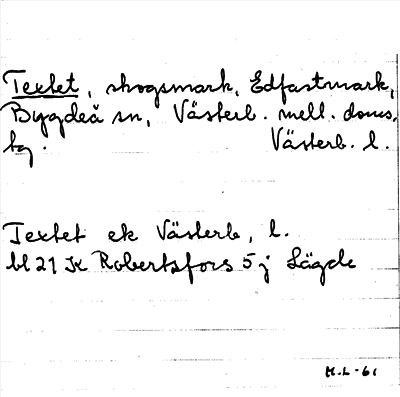 Textet, skogsmark, Edfastmark,
Bygdeå sn, Västerb. mell. doms.
tg. Västerb. l.
Textet ek Västerb, l.
bl 21 K Robertsfors 5 j Lägde
M.L-61